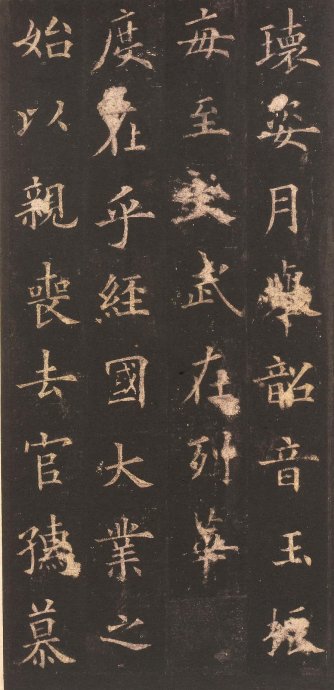 瓌姿月韶音玉振
每至文武在列華
度在乎經國大業之
始以親喪去官孺慕